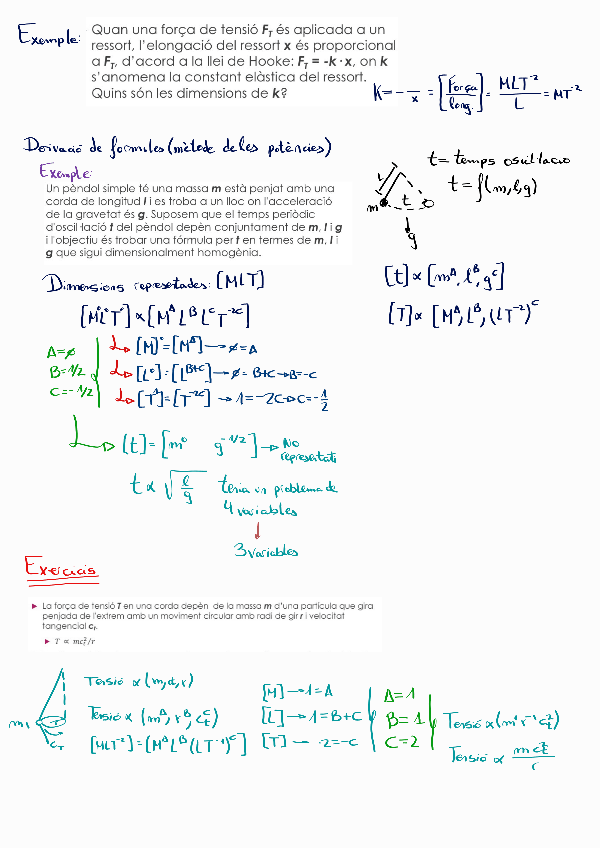 Exemple:
Quan una força de tensió F_T és aplicada a un
ressort, l'elongació del ressort x és proporcional
a F_T, d'acord a la llei de Hooke: F_T = -k · x, on k
s'anomena la constant elàstica del ressort.
Quins són les dimensions de k?
K = - — x = [Força / long.] = MLT⁻² / L = MT⁻²
Derivació de formules (mètode de les potències)
Exemple:
Un pèndol simple té una massa m està penjat amb una
corda de longitud l i es troba a un lloc on l'acceleració
de la gravetat és g. Suposem que el temps periòdic
d'oscil·lació t del pèndol depèn conjuntament de m, l i g
i l'objectiu és trobar una fórmula per t en termes de m, l i
g que sigui dimensionalment homogènia.
t = temps oscil·lació
t = f(m, l, g)
L
m
t
g
Dimensions representades: [MLT]
[t] ∝ [mᴬ, lᴮ, gᶜ]
[M⁰L⁰T¹] ∝ [Mᴬ Lᴮ Lᶜ T⁻²ᶜ]
[T] ∝ [Mᴬ, Lᴮ, (LT⁻²)ᶜ
A = ∅
B = 1/2
C = -1/2
[M]⁰ = [Mᴬ] → ∅ = A
[L⁰] = [Lᴮ⁺ᶜ] → ∅ = B+C → B = -C
[T¹] = [T⁻²ᶜ] → 1 = -2C → C = -1/2
[t] = [m⁰ g⁻¹/²] → No
representati
t ∝ √(l/g)
tenia un problema de
4 variables
↓
3 variables
Exercicis
La força de tensió T en una corda depèn de la massa m d'una partícula que gira
penjada de l'extrem amb un moviment circular amb radi de gir r i velocitat
tangencial c_t.
T ∝ mc_t²/r
Tensió ∝ (m, ct, r)
Tensió ∝ (mᴬ, rᴮ, c_tᶜ)
[MLT⁻²] = [Mᴬ Lᴮ (LT⁻¹)ᶜ]
m
r
c_T
[M] → 1 = A
[L] → 1 = B+C
[T] — -2 = -C
A = 1
B = 1
C = 2
Tensió ∝ (m¹ r⁻¹ c_t²)
Tensió ∝ m c_t² / r